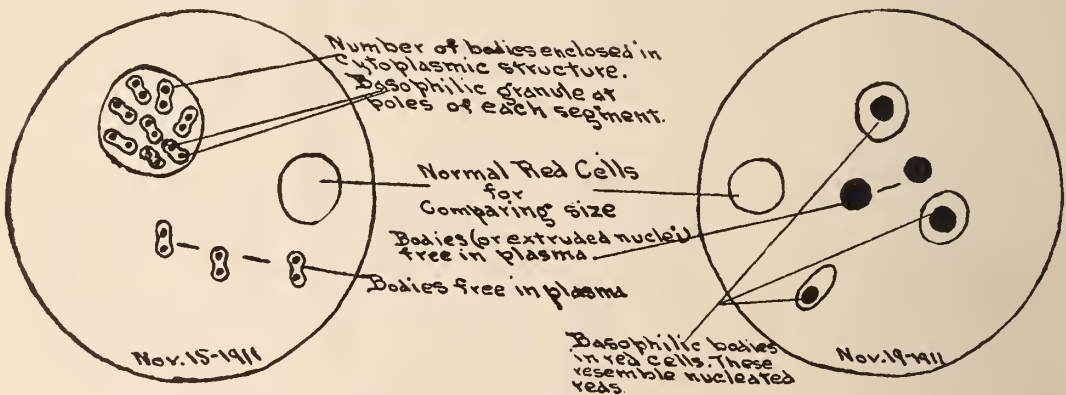 Number of bodies enclosed in
cytoplasmic structure.
Basophilic granule at
poles of each segment.
Normal Red Cells
for
Comparing size
Bodies (or extruded nuclei)
free in plasma
Bodies free in plasma
Nov. 15-1911
Basophilic bodies
in red cells. These
resemble nucleated
reds.
Nov. 19-1911